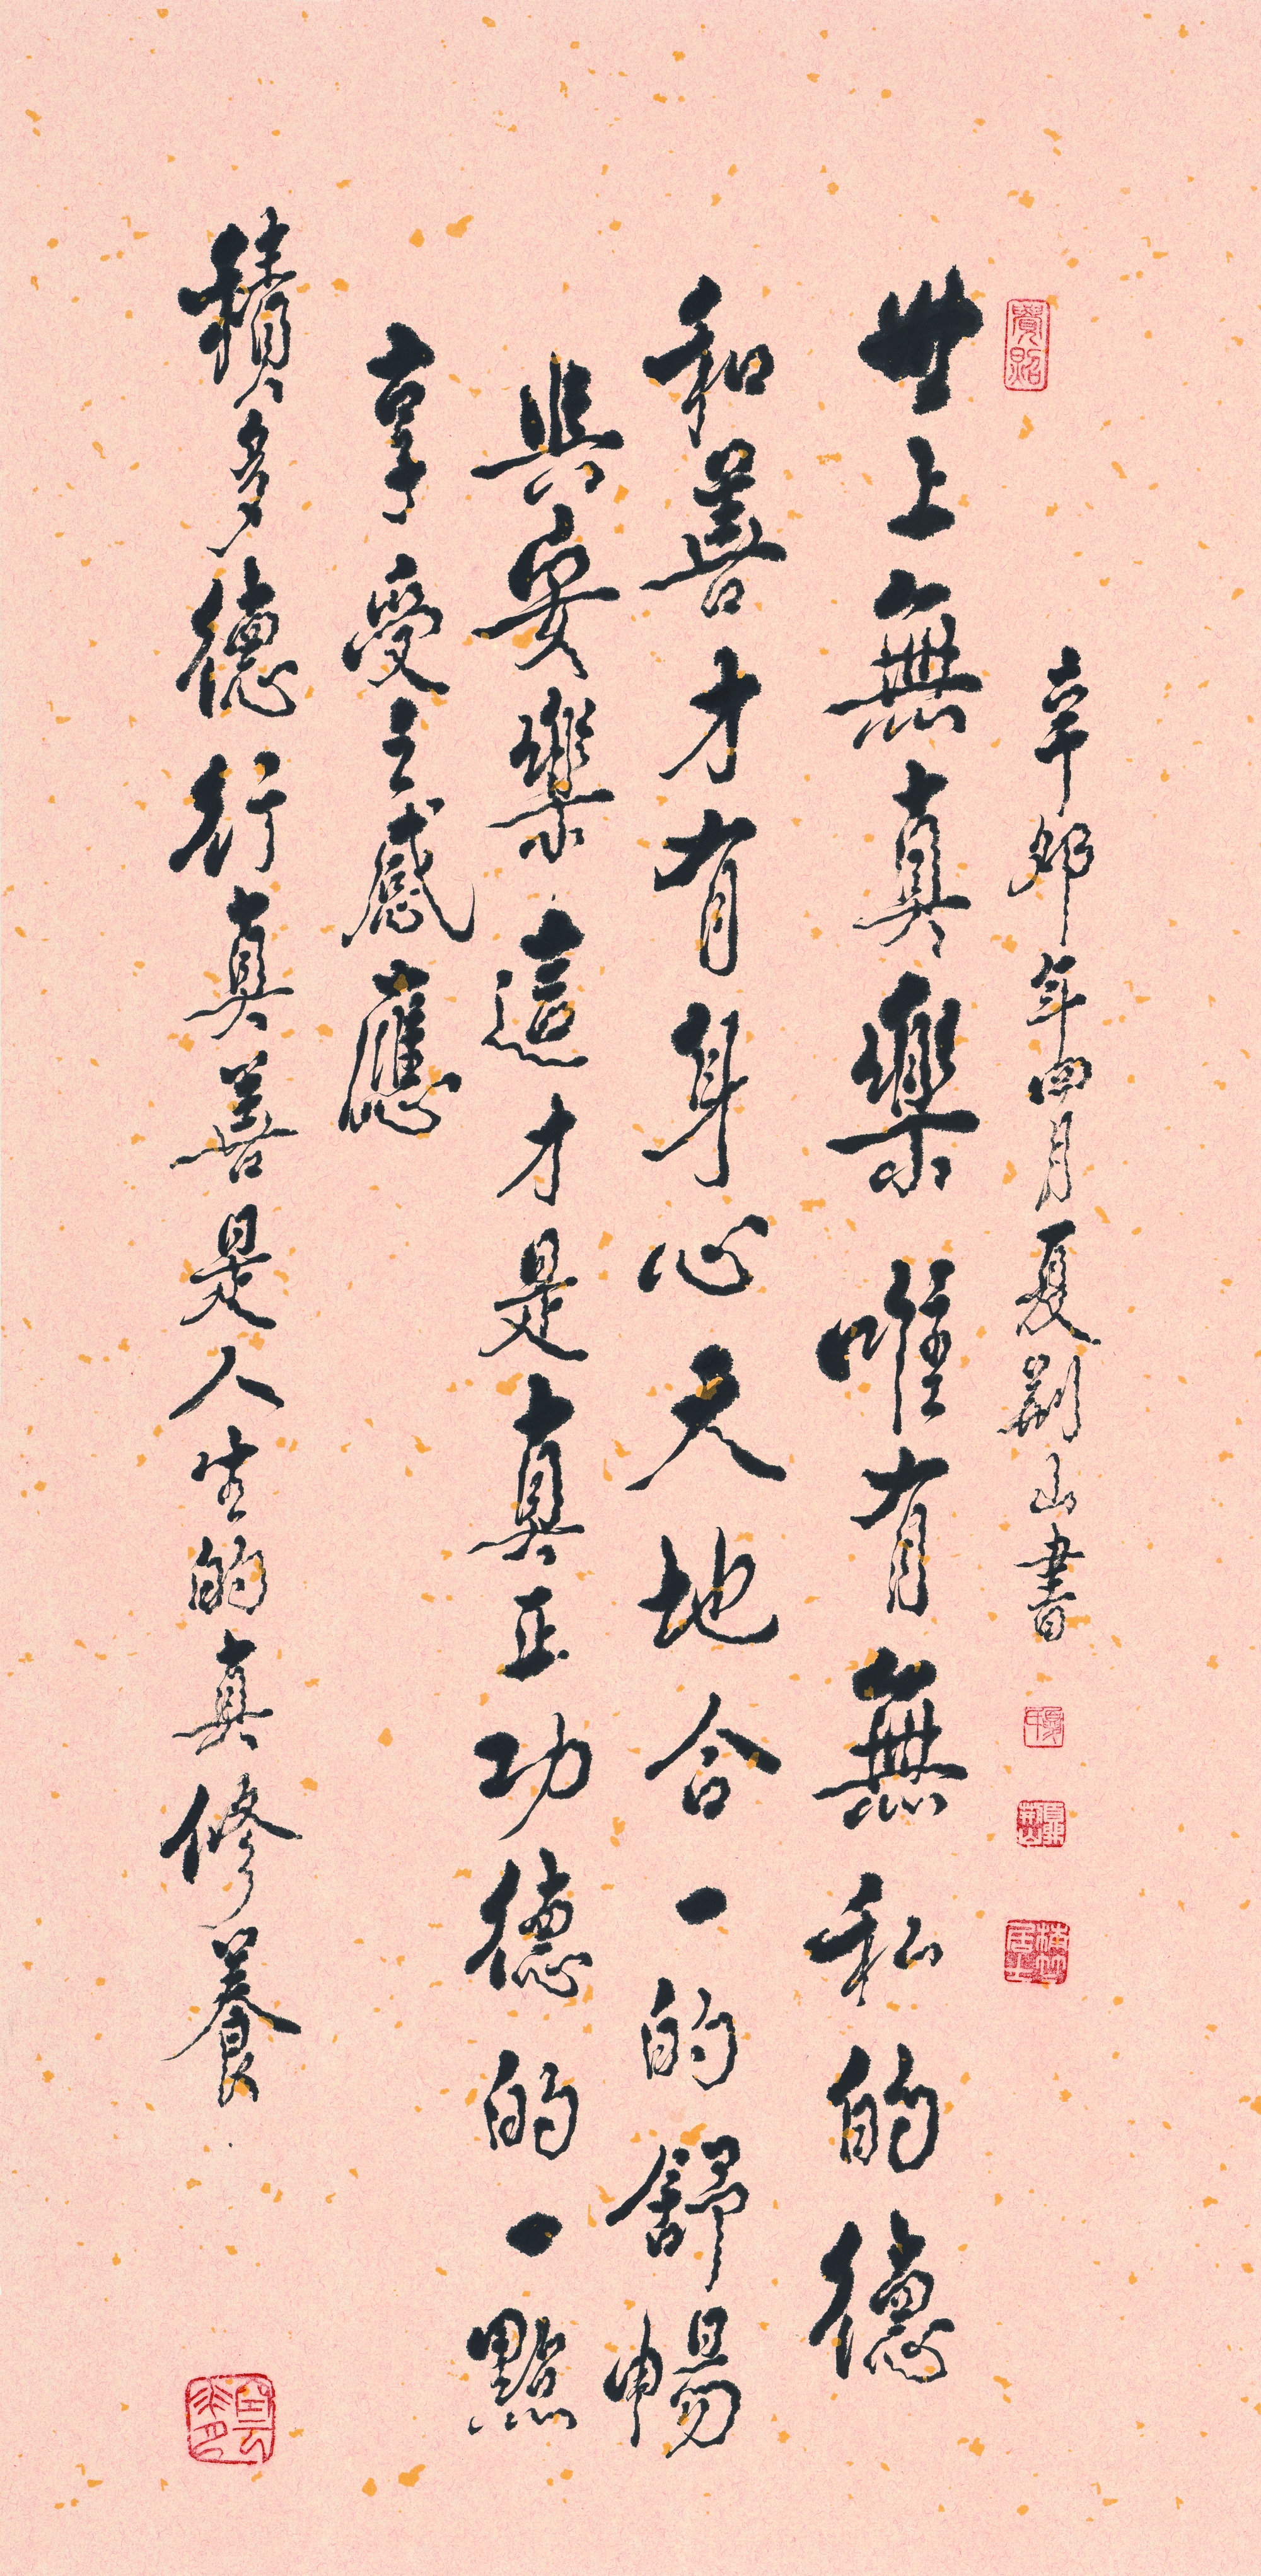 辛卯年四月夏荊山書
世上無真樂唯有無私的德
和善才有身心天地合一的舒暢
與安樂這才是真正功德的一點
享受之感應
積多德行真善是人生的真修養